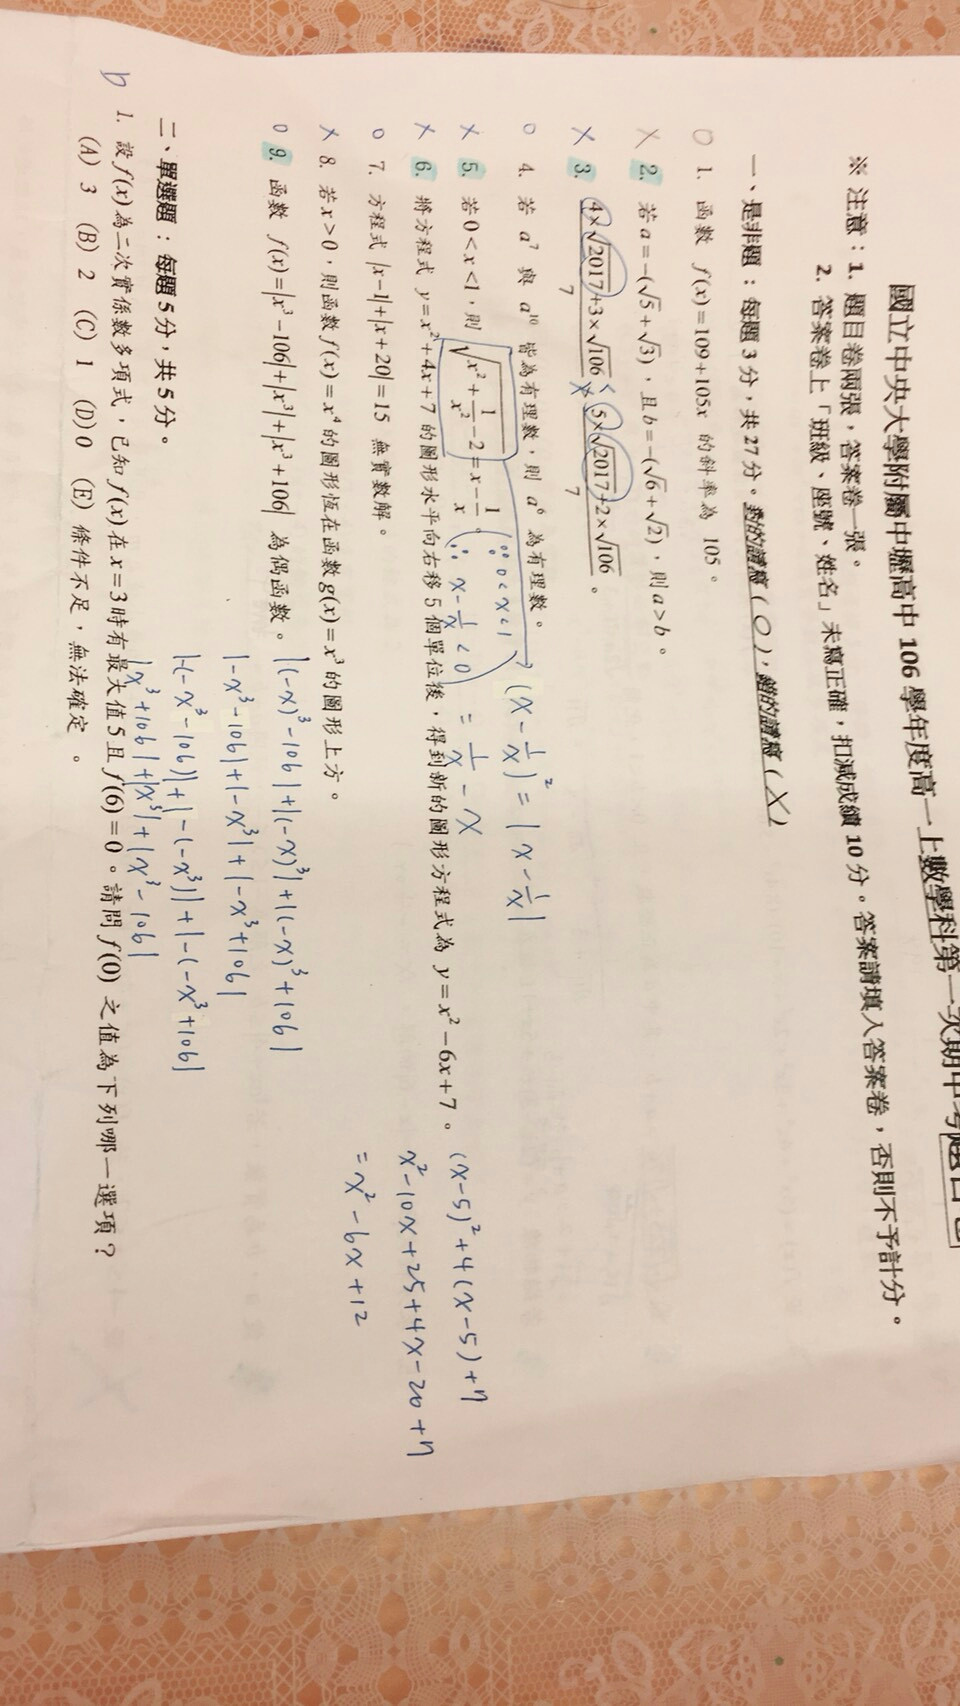 國立中央大學附屬中壢高中 106 學年度高一上數學科第一次期中考題目卷
※ 注意：1. 題目卷兩張，答案卷一張。
2. 答案卷上「班級、座號、姓名」未寫正確，扣減成績 10 分。答案請填入答案卷，否則不予計分。
一、是非題：每題 3 分，共 27 分。對的請寫(○)，錯的請寫(╳)
○ 1. 函數 f(x)=109+105x 的斜率為 105。
× 2. 若 a=-(√5+√3)，且 b=-(√6+√2)，則 a>b。
× 3. (4×√2017+3×√106)/7 < (5×√2017+2×√106)/7。
○ 4. 若 a⁷ 與 a¹⁰ 皆為有理數，則 a⁶ 為有理數。
(x-1/x)² = |x-1/x|
× 5. 若 0<x<1，則 √(x²+1/x²-2) = x-1/x。
(∵0<x<1
∴ x-1/x<0) = 1/x - x
× 6. 將方程式 y=x²+4x+7 的圖形水平向右移 5 個單位後，得到新的圖形方程式為 y=x²-6x+7。
(x-5)²+4(x-5)+7
x²-10x+25+4x-20+7
=x²-6x+12
○ 7. 方程式 |x-1|+|x+20|=15 無實數解。
× 8. 若 x>0，則函數 f(x)=x⁴ 的圖形恆在函數 g(x)=x³ 的圖形上方。
○ 9. 函數 f(x)=|x³-106|+|x³|+|x³+106| 為偶函數。
|(-x)³-106|+|(-x)³|+|(-x)³+106|
|-x³-106|+|-x³|+|-x³+106|
|-(-x³-106)|+|-(-x³)|+|-(-x³+106)|
|x³+106|+|x³|+|x³-106|
二、單選題：每題 5 分，共 5 分。
D 1. 設 f(x) 為二次實係數多項式，已知 f(x) 在 x=3 時有最大值 5 且 f(6)=0。請問 f(0) 之值為下列哪一選項？
(A) 3 (B) 2 (C) 1 (D) 0 (E) 條件不足，無法確定。